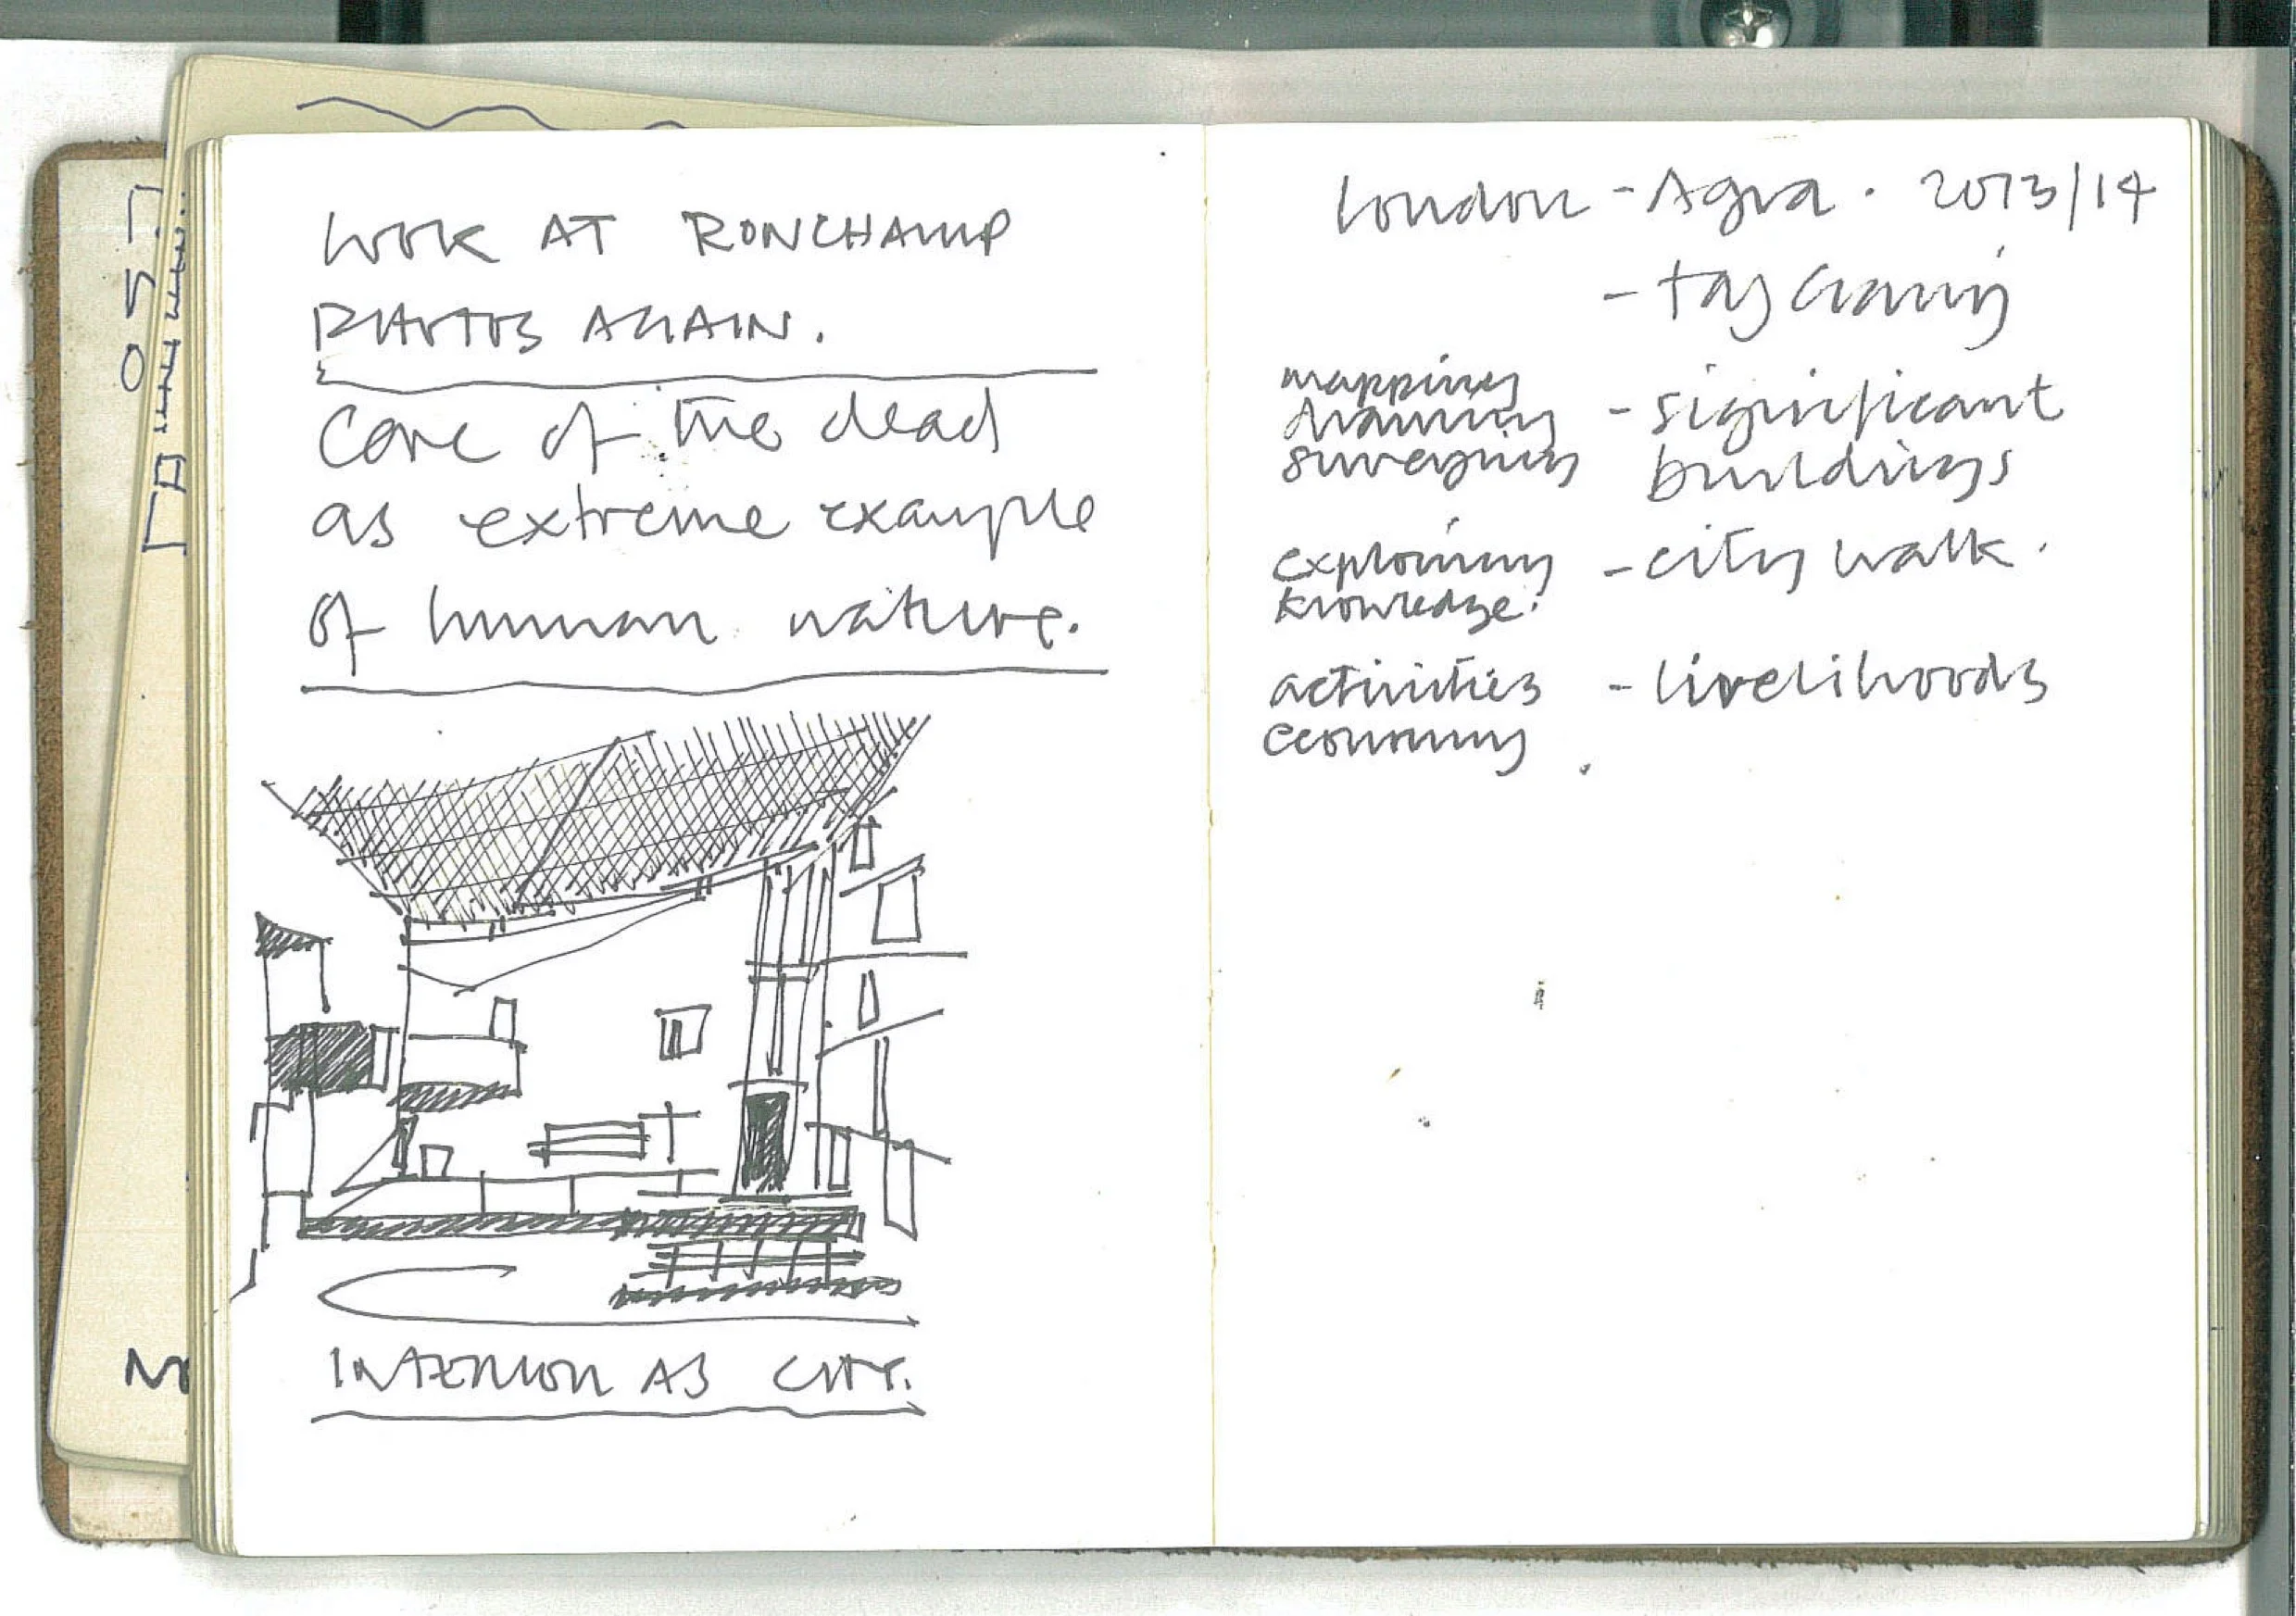 LOOK AT RONCHAMP
PHOTOS AGAIN.
Care of the dead
as extreme example
of human nature.
INTERIOR AS CITY.
London - Agra . 2013/14
- Taj
mapping
drawing
surveying
- significant
buildings
exploring
knowledge.
- city walk.
activities
economy
- livelihoods